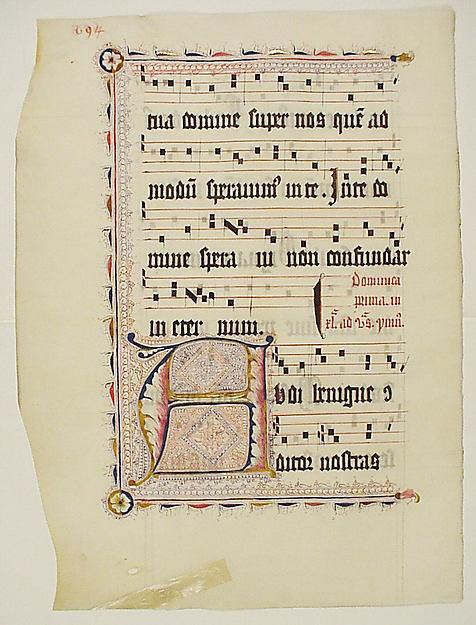 694
tua domine super nos quē ad
modū speravim⁹ in te. In te do
mine spera vi non confundar
in eter num.
Dominica
prima in
xl. ad vs. ymn.
Audi benigne ɔ
ditor nostras